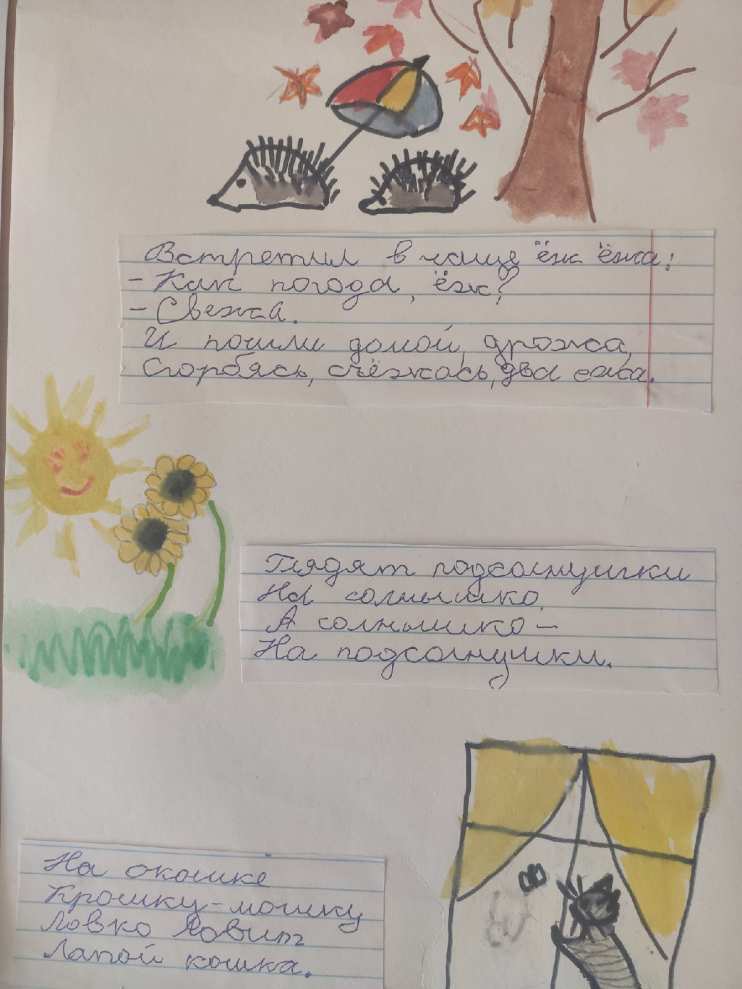 Встретил в чаще ёж ежа:
- Как погода, ёж?
- Свежа.
И пошли домой, дрожа,
Сгорбясь, съёжась, два ежа.
Глядят подсолнушки
На солнышко,
А солнышко —
На подсолнушки.
На окошке
Крошку-мошку
Ловко ловит
Лапой кошка.